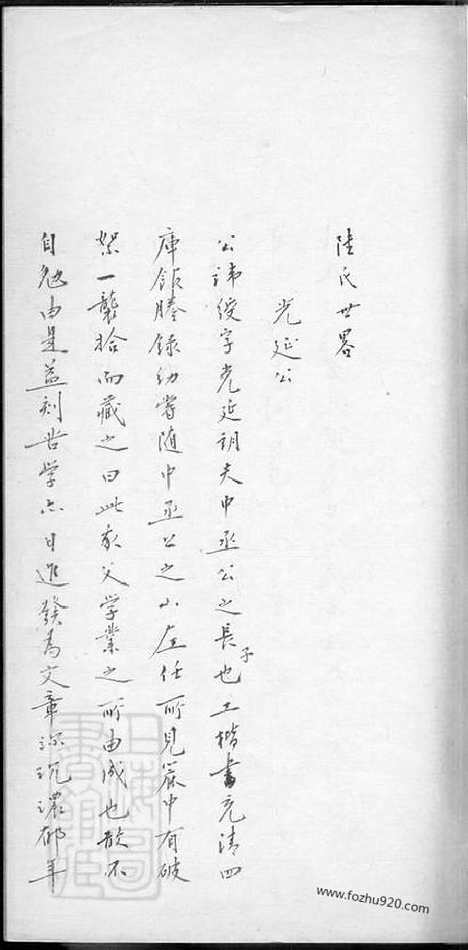 陸氏世畧
光延公
公諱綬字光延朗夫中丞公之長子也工楷書充清四
庫館謄録幼嘗随中丞公之山左任所見篋中有破
絮一襲拾而藏之曰此家父学業之所由成也敢不
自勉由是益刻苦学亦日進發為文章深沉濃郁年
上海圖書館藏
www.fozhu920.com